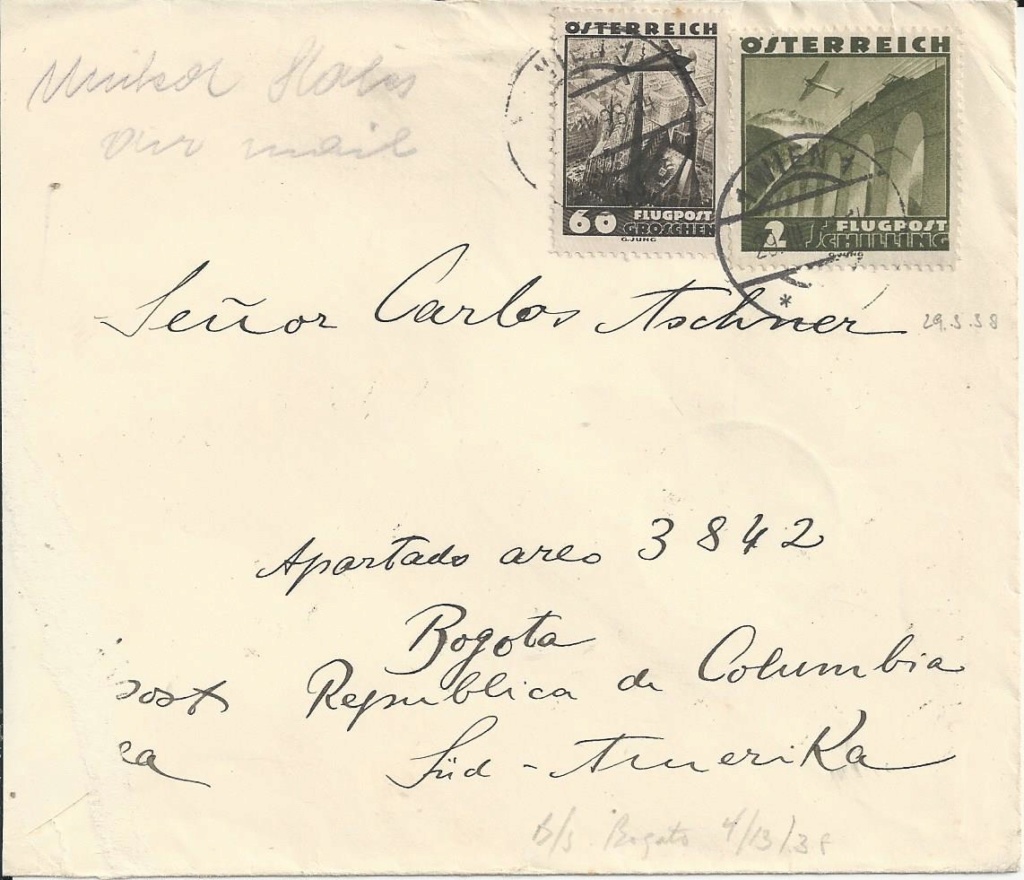 United States
Air mail
ÖSTERREICH
60 FLUGPOST
GROSCHEN
G.JUNG
ÖSTERREICH
2 FLUGPOST
SCHILLING
G.JUNG
1 WIEN 1
Señor Carlos Aschner
29.3.38
Apartado areo 3842
Bogota
post Republica de Columbia
ca Süd-Amerika
b/s Bogota 4/13/38